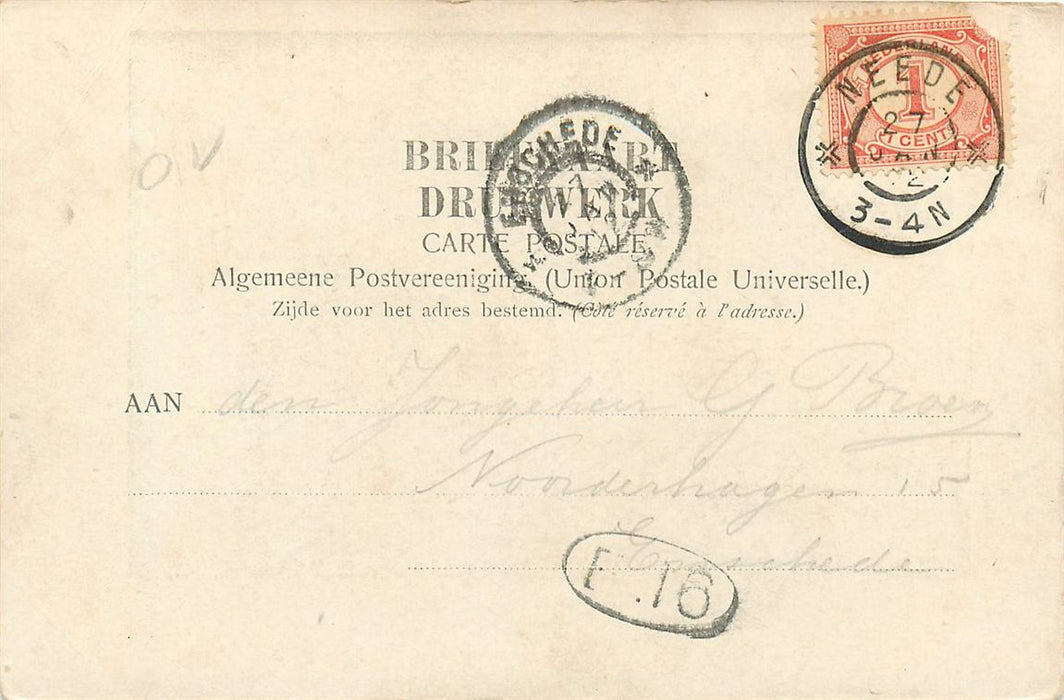 NEDERLAND
1
1 CENT
NEEDE
27
JAN
2
3-4N
ENSCHEDE
BRIEFKAART
DRUKWERK
CARTE POSTALE
Algemeene Postvereeniging. (Union Postale Universelle.)
Zijde voor het adres bestemd. (Côté réservé à l'adresse.)
AAN den Jongeheer G Broer
Noorderhagen 15
Enschede
16